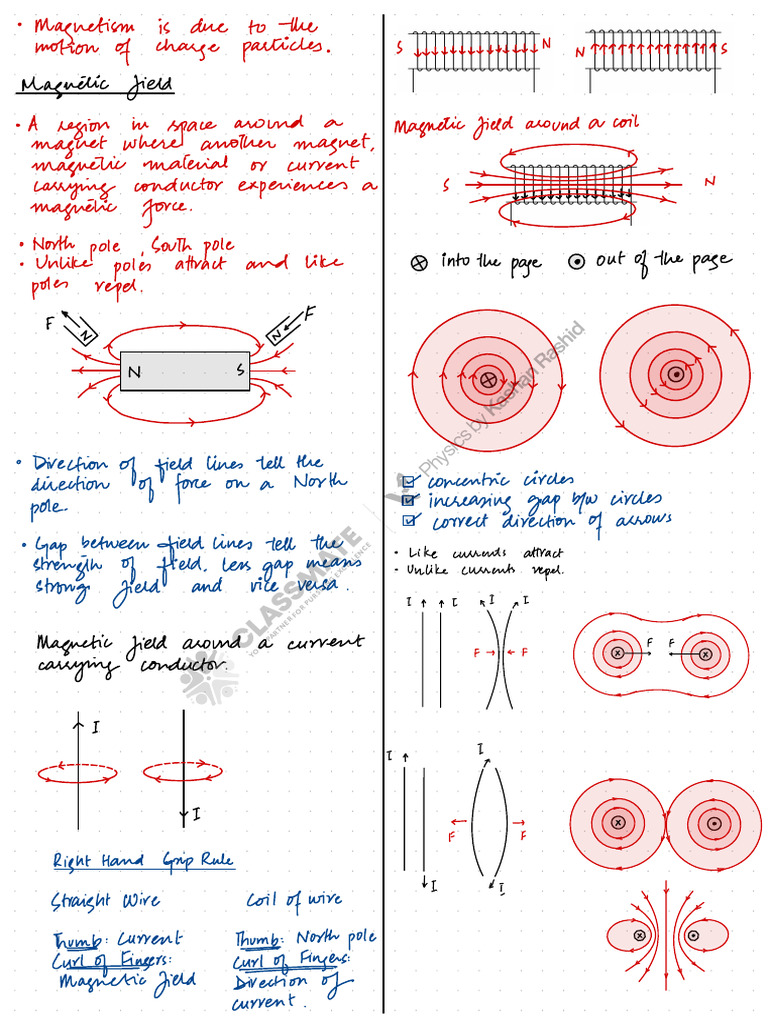 • Magnetism is due to the
motion of charge particles.
Magnetic field
• A region in space around a
magnet where another magnet,
magnetic material or current
carrying conductor experiences a
magnetic force.
• North pole, South pole
• Unlike poles attract and like
poles repel.
F N N F
N S
• Direction of field lines tell the
direction of force on a North
pole.
• Gap between field lines tell the
strength of field. Less gap means
strong field and vice versa.
Magnetic field around a current
carrying conductor.
I
I
Right Hand Grip Rule
Straight Wire
Thumb: Current
Curl of Fingers:
Magnetic field
Coil of wire
Thumb: North pole
Curl of Fingers:
Direction of
current.
S N N S
Magnetic field around a coil
S N
⊗ into the page ⊙ out of the page
☑ concentric circles
☑ increasing gap b/w circles
☑ correct direction of arrows
• Like currents attract
• Unlike currents repel.
I I I I
F F F F
I I
F F
I I
CLASSMATE
YOUR PARTNER FOR PURSUING EXCELLENCE
Physics by Kashan Rashid